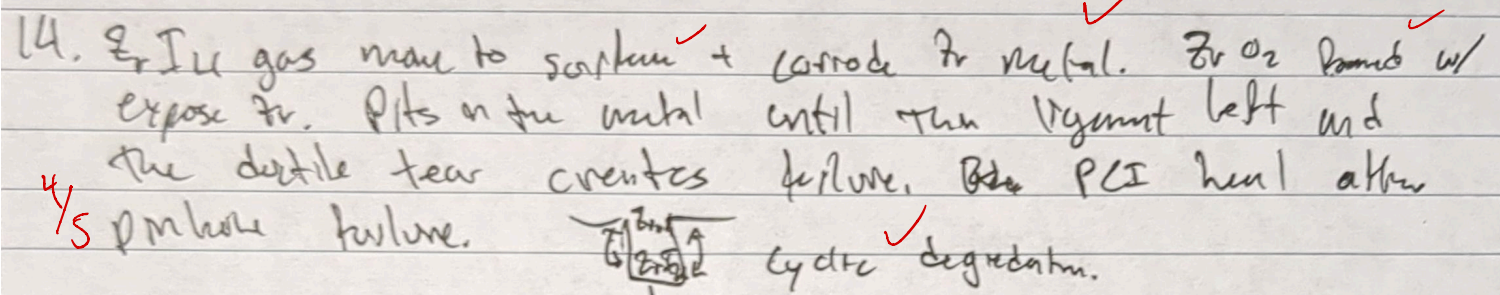 14. ZrI4 gas move to surface + corrode Zr metal. ZrO2 formed w/
expose Zr. Pits in the metal until thin ligament left and
the ductile tear creates failure. PCI heal after
4/5 pinhole failure.
cyclic degredation.